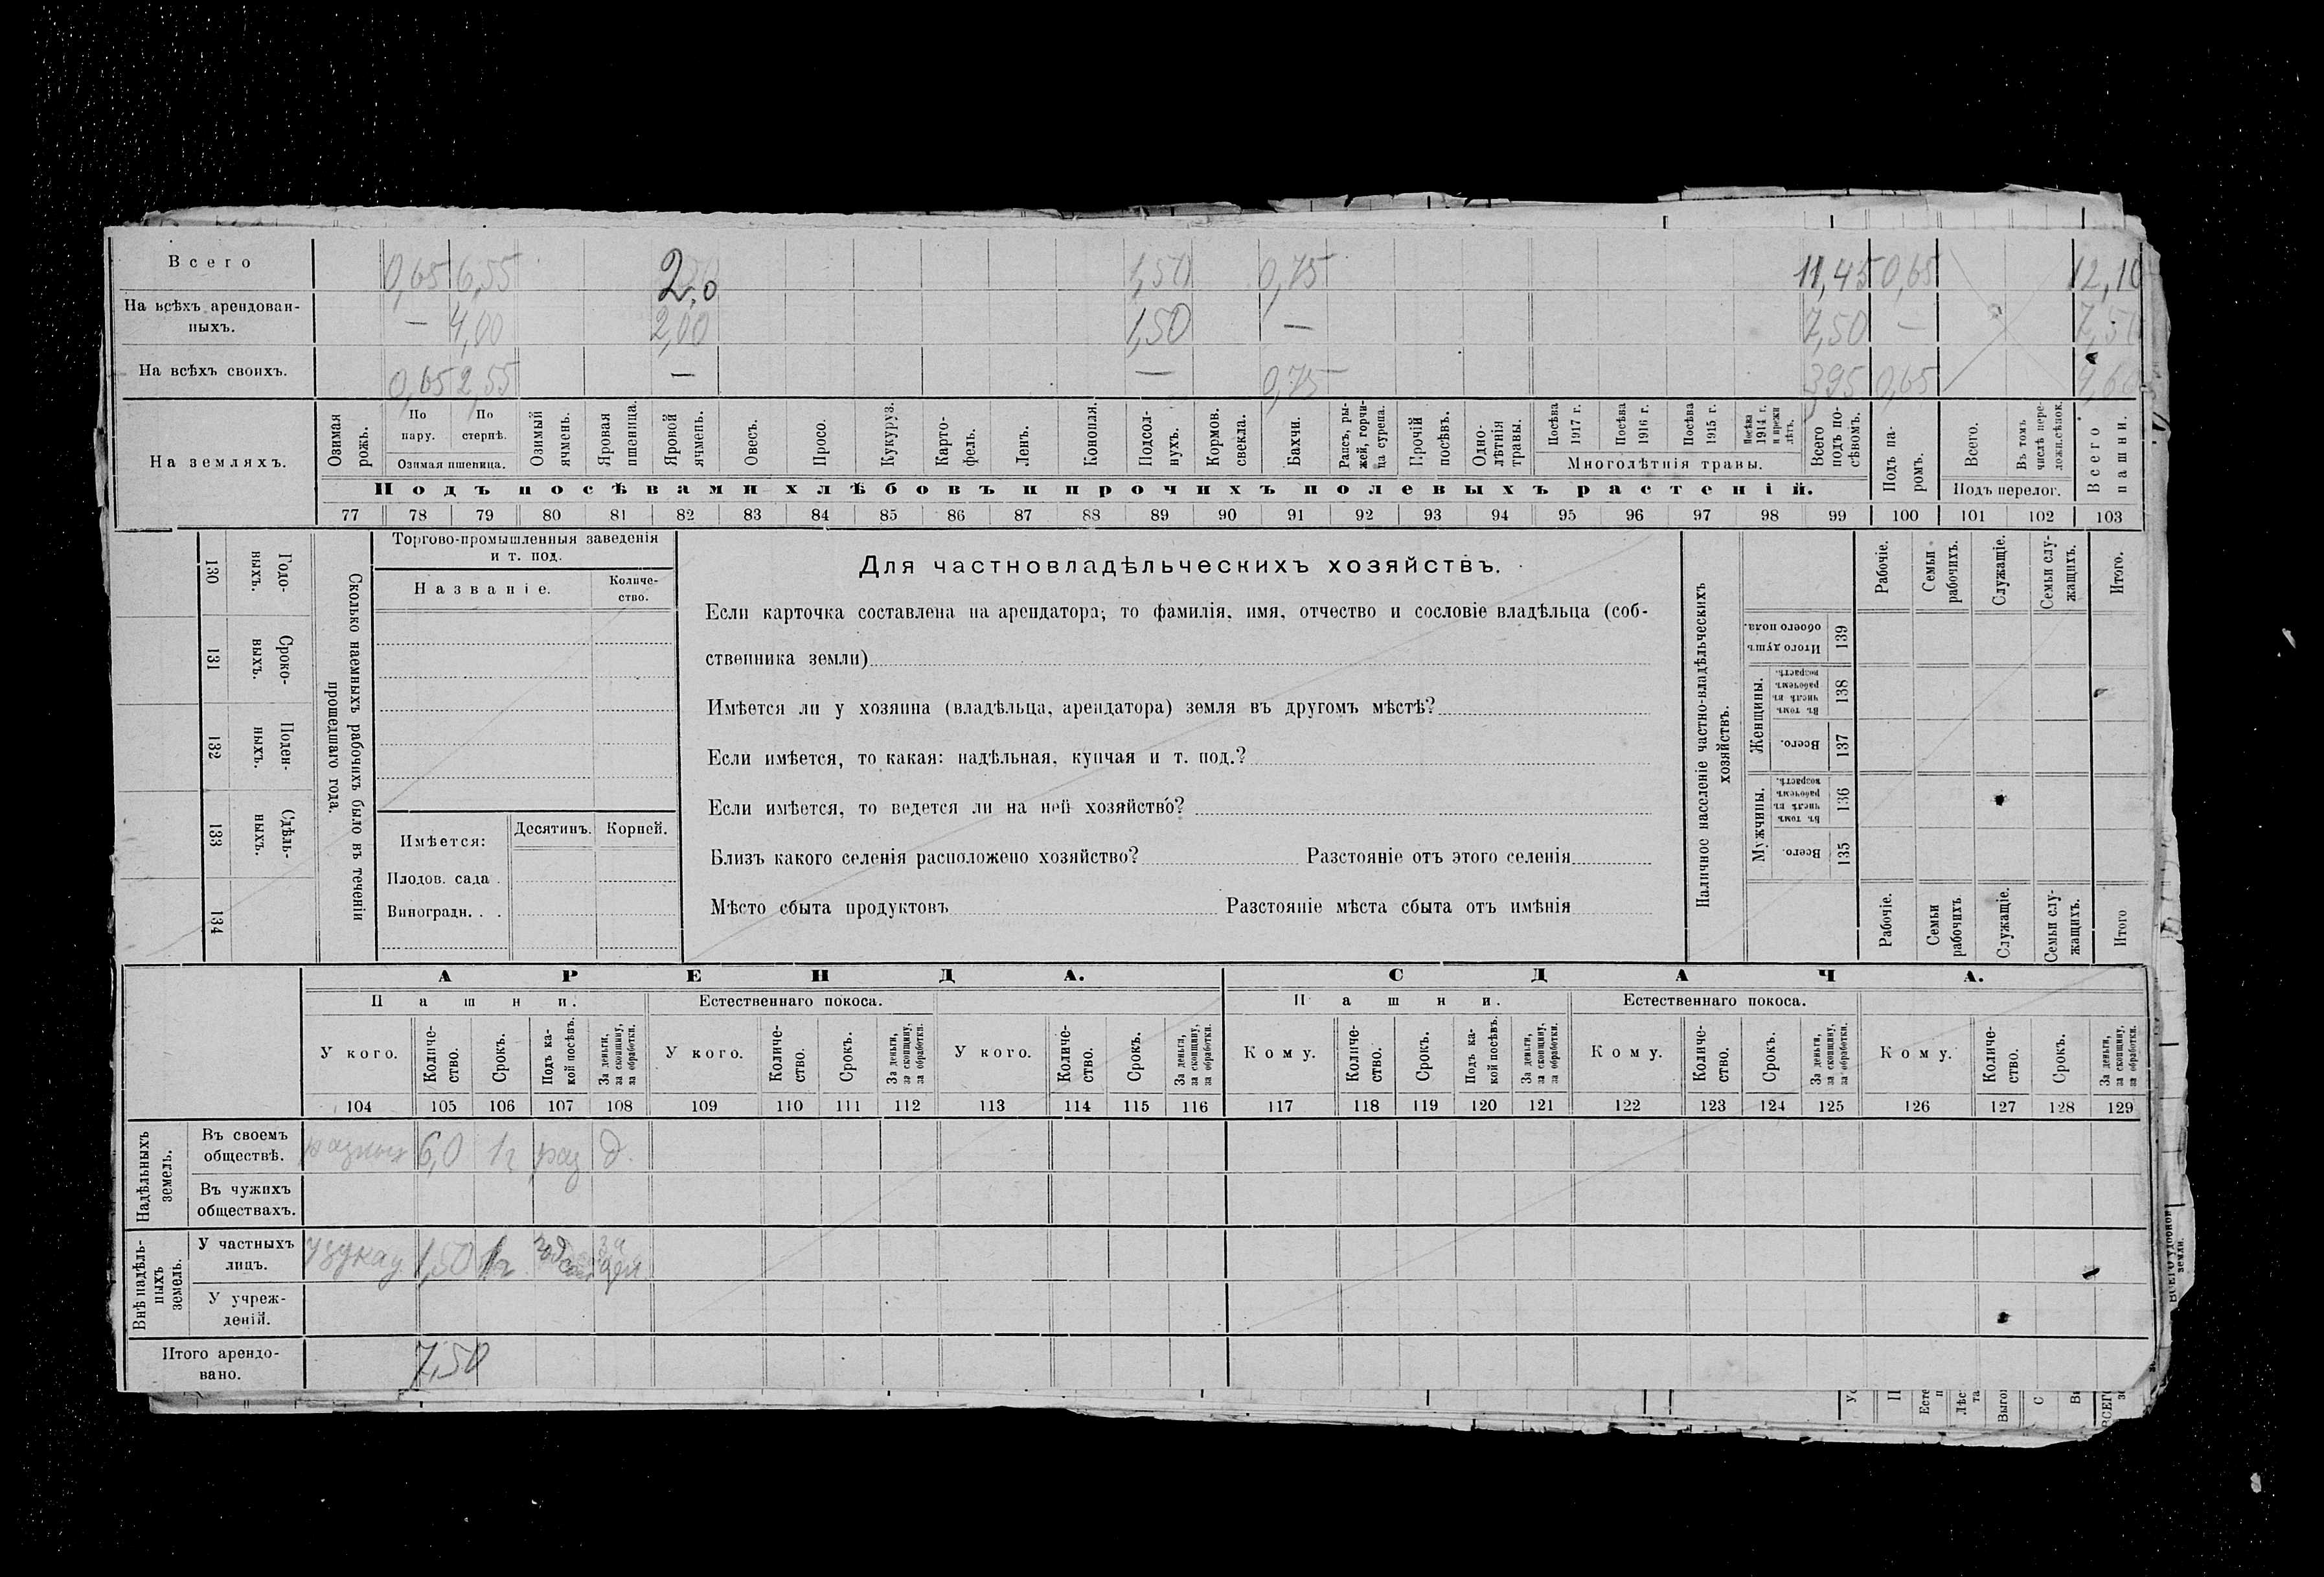 Всего 0,65 6,55 2,0 1,50 0,75 11,45 0,65 12,10
На всѣхъ арендован-
ныхъ. — 4,00 2,00 1,50 — 7,50 — 7,50
На всѣхъ своихъ. 0,65 2,55 — — 0,75 3,95 0,65
На земляхъ.
Озимая рожь.
По пару.
По стернѣ.
Озимая пшеница.
Озимый ячмень.
Яровая пшеница.
Яровой ячмень.
Овесъ.
Просо.
Кукуруз.
Карто-
фель.
Ленъ.
Конопля.
Подсол-
нухъ.
Кормов.
свекла.
Бахчи.
Рапсъ, ры-
жей, горчи-
ца сурепа.
Прочій
посѣвъ.
Одно-
лѣтнія
травы.
Посѣва
1917 г.
Посѣва
1916 г.
Посѣва
1915 г.
Посѣва
1914 г.
и прежн
лѣтъ.
Многолѣтнія травы.
Всего
подъ по-
сѣвомъ.
Подъ па-
ромъ.
Всего.
Въ томъ
числѣ пере-
ложн.сѣнок.
Подъ перелог.
Всего
пашни.
Подъ посѣвами хлѣбовъ и прочихъ полевыхъ растеній.
77 78 79 80 81 82 83 84 85 86 87 88 89 90 91 92 93 94 95 96 97 98 99 100 101 102 103
Сколько наемныхъ рабочихъ было въ теченіи
прошедшаго года.
Годо-
выхъ.
130
Сроко-
выхъ.
131
Поден-
ныхъ.
132
Сдѣль-
ныхъ.
133
134
Торгово-промышленныя заведенія
и т. под.
Названіе.
Количе-
ство.
Имѣется:
Десятинъ.
Корней.
Плодов. сада .
Виноградн. . .
Для частновладѣльческихъ хозяйствъ.
Если карточка составлена на арендатора, то фамилія, имя, отчество и сословіе владѣльца (соб-
ственника земли)
Имѣется ли у хозяина (владѣльца, арендатора) земля въ другомъ мѣстѣ?
Если имѣется, то какая: надѣльная, купчая и т. под.?
Если имѣется, то ведется ли на ней хозяйство?
Близъ какого селенія расположено хозяйство? Разстояніе отъ этого селенія
Мѣсто сбыта продуктовъ Разстояніе мѣста сбыта отъ имѣнія
Наличное населеніе частно-владѣльческихъ
хозяйствъ.
Рабочіе.
Семьи
рабочихъ.
Служащіе.
Семьи слу-
жащихъ.
Итого.
Итого душъ
обоего пола.
139
Женщины.
Въ томъ
числѣ въ
рабочемъ
возрастѣ.
138
Всего.
137
Мужчины.
Въ томъ
числѣ въ
рабочемъ
возрастѣ.
136
Всего.
135
Рабочіе.
Семьи
рабочихъ.
Служащіе.
Семьи слу-
жащихъ.
Итого
АРЕНДА. СДАЧА.
Пашни. Естественнаго покоса. Пашни. Естественнаго покоса.
У кого.
Количе-
ство.
Срокъ.
Подъ ка-
кой посѣвъ.
За деньги,
за скопщину,
за обработки.
У кого.
Количе-
ство.
Срокъ.
За деньги,
за скопщину,
за обработки.
У кого.
Количе-
ство.
Срокъ.
За деньги,
за скопщину,
за обработки.
Кому.
Количе-
ство.
Срокъ.
Подъ ка-
кой посѣвъ.
За деньги,
за скопщину,
за обработки.
Кому.
Количе-
ство.
Срокъ.
За деньги,
за скопщину,
за обработки.
Кому.
Количе-
ство.
Срокъ.
За деньги,
за скопщину,
за обработки.
104 105 106 107 108 109 110 111 112 113 114 115 116 117 118 119 120 121 122 123 124 125 126 127 128 129
Надѣльныхъ
земель.
Въ своемъ
обществѣ. разных 6,0 1г раз д.
Въ чужихъ
обществахъ.
Внѣ надѣль-
ныхъ
земель.
У частныхъ
лицъ. 1,50 1г за
У учреж-
деній.
Итого арендо-
вано. 7,50